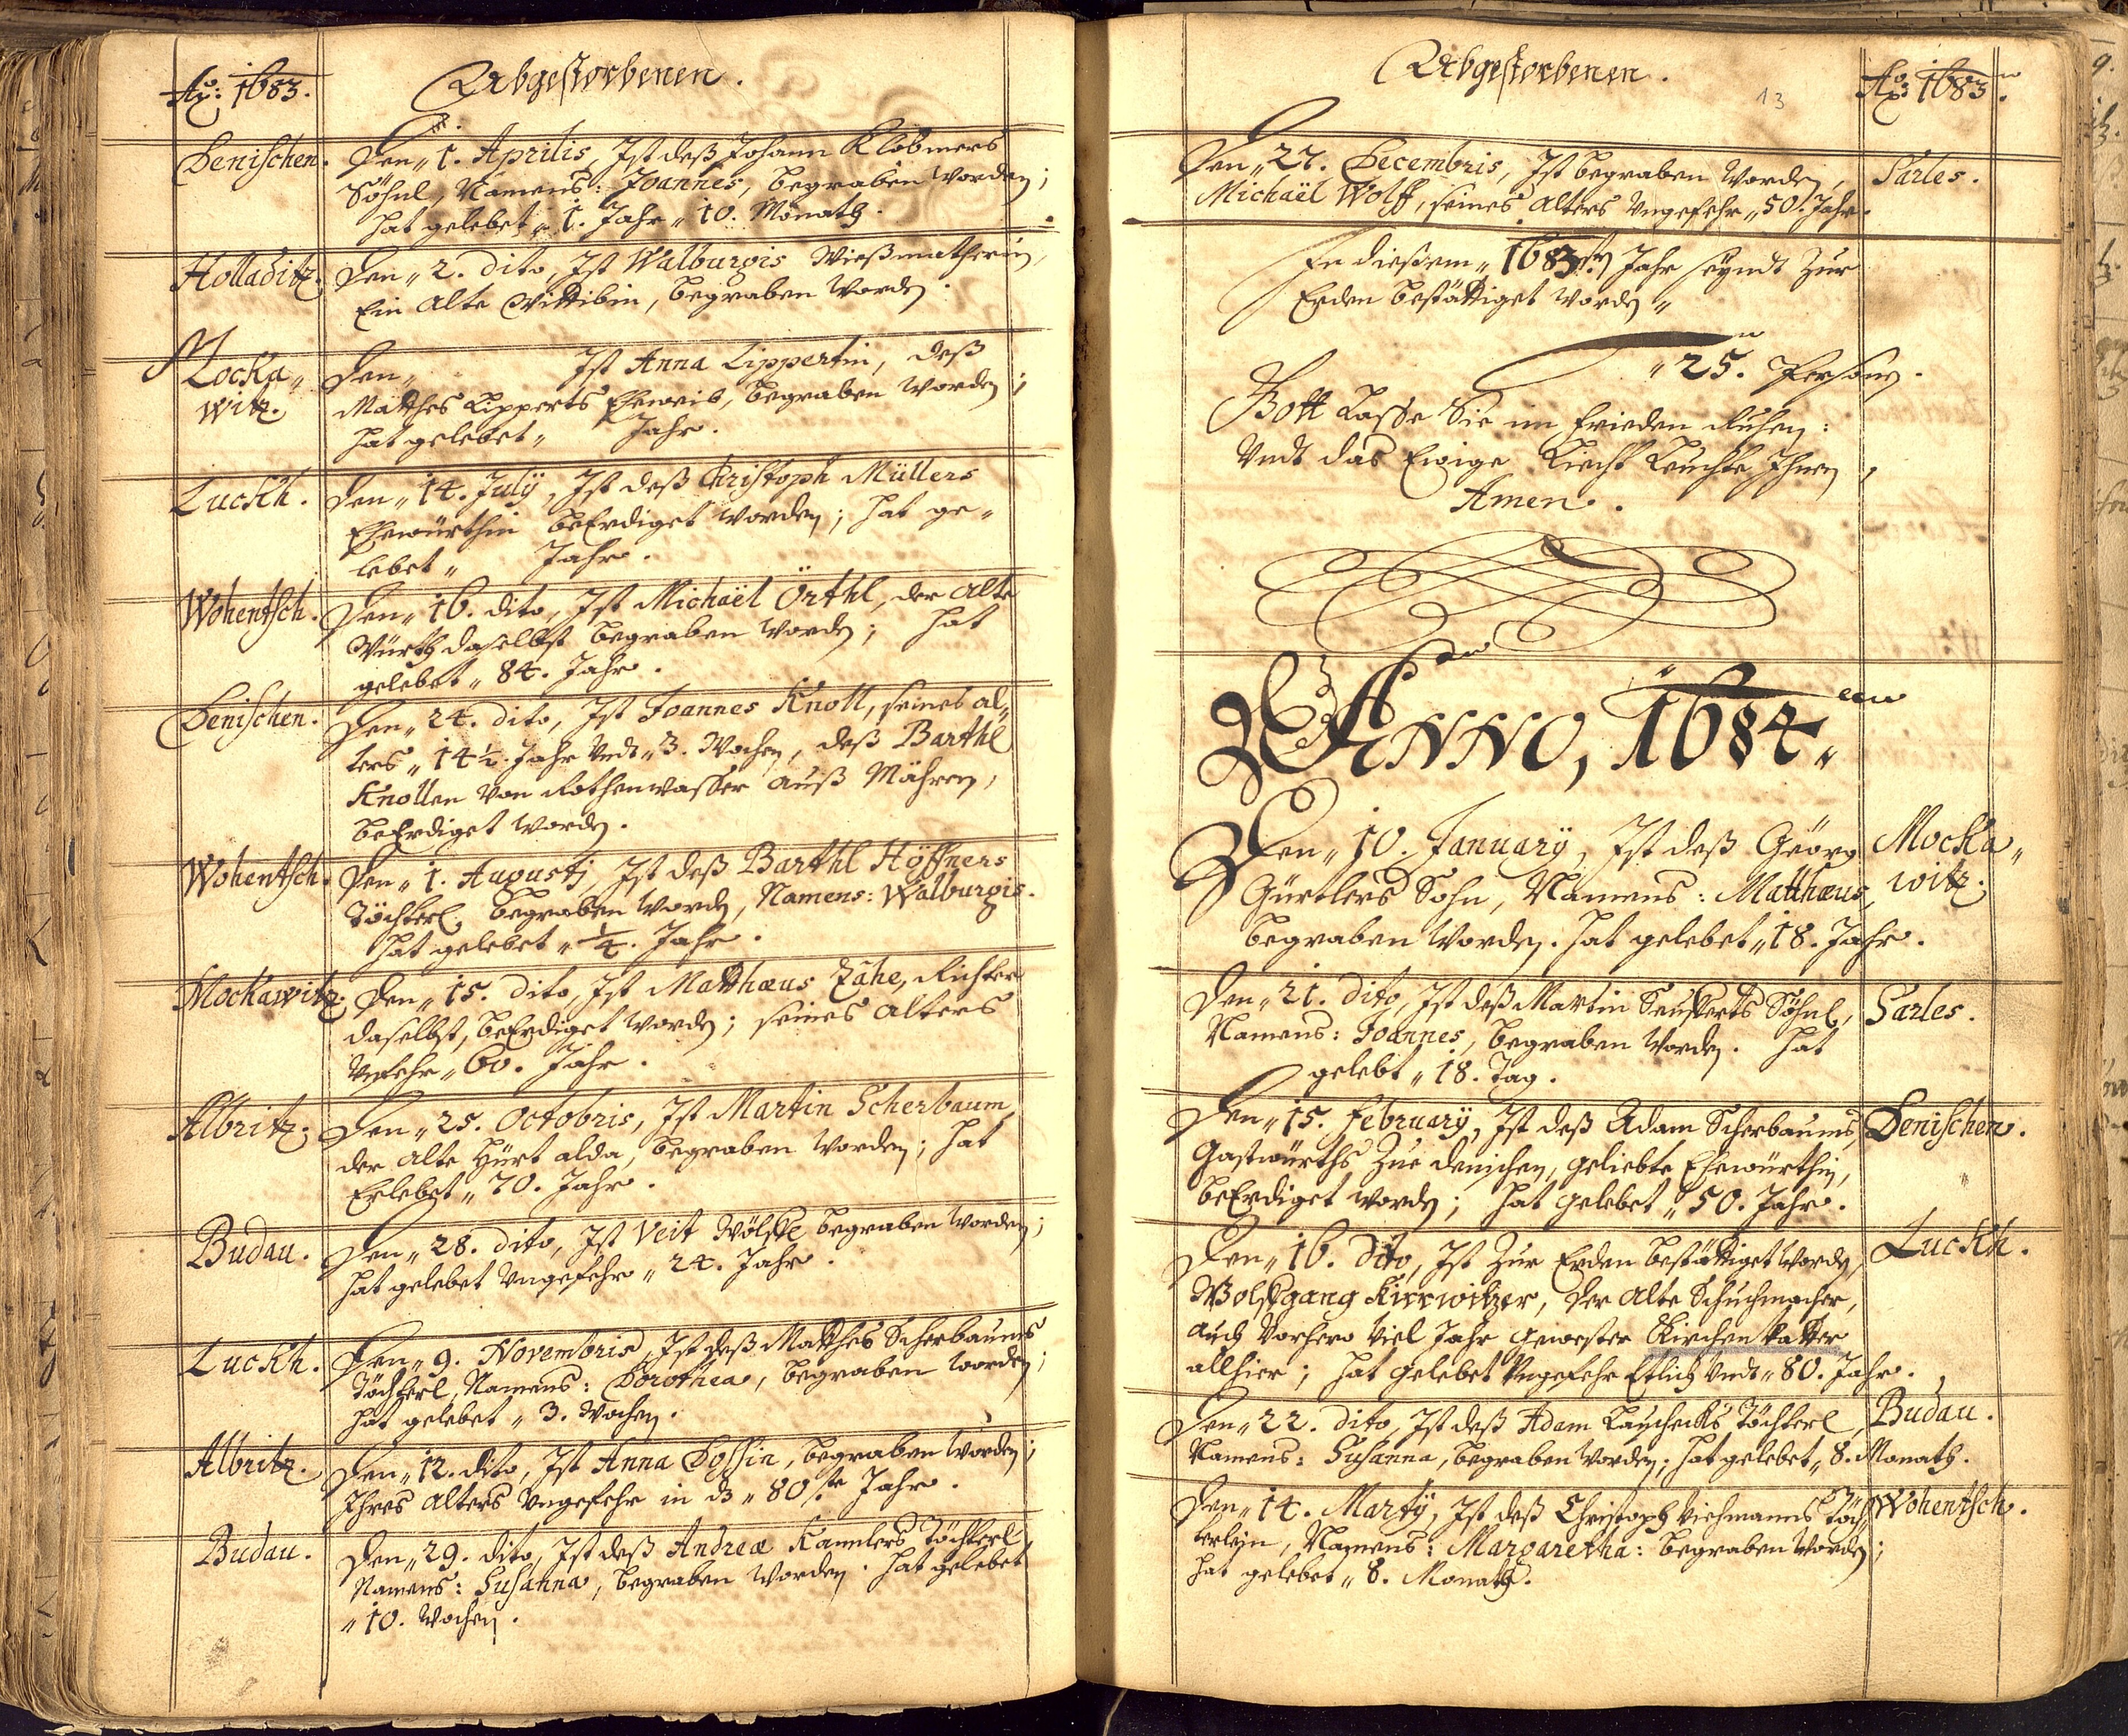 Ao: 1683.
Abgestorbenen.
Denischen.
Den „ 1. Aprilis, Ist deß Johann Klöbners
Söhnl, Namens: Joannes, begraben worden;
hat gelebet „ 1. Jahr „ 10. Monath.
Holladitz.
Den „ 2. dito, Ist Walburgis Wießmatherin,
Ein Alte Wittibin, begraben worden.
Mocka„
witz.
Den „ Ist Anna Lippertin, deß
Matthes Lipperts Eheweib, begraben worden;
hat gelebet „ Jahr.
Luckh.
Den „ 14. July, Ist deß Christoph Müllers
Ehewürthin beErdiget worden; hat ge„
lebet „ Jahr.
Wohentsch.
Den „ 16. dito, Ist Michaël Örthl, der alte
Würth daselbst begraben worden; hat
gelebet „ 84. Jahr.
Denischen.
Den „ 24. dito, Ist Joannes Knoll, seines al„
ters „ 14 ½. Jahr Vndt „ 3. Wochen, deß Barthl
Knollen von Rothenwasser auß Mähren,
beErdiget worden.
Wohentsch.
Den „ 1. Augusti, Ist deß Barthl Höffners
Töchterl begraben worden, Namens: Walburgis.
hat gelebet „ ¼. Jahr.
Mockawitz.
Den „ 15. dito, Ist Matthæus Zähe, Richter
daselbst, beErdiget worden; seines Alters
Vnfehr „ 60. Jahr.
Albritz.
Den „ 25. Octobris, Ist Martin Scherbaum,
der alte Hürt alda, begraben worden; hat
Erlebet „ 70. Jahr.
Budau.
Den „ 28. dito, Ist Veit Wölffl begraben worden;
hat gelebet Vngefehr „ 24. Jahr.
Luckh.
Den „ 9. Novembris, Ist deß Matthes Scherbaums
Töchterl, Namens: Dorothea, begraben worden;
hat gelebet „ 3. Wochen.
Albritz.
Den „ 12. dito, Ist Anna Dossin, begraben worden;
Ihres Alters Vngefehr in dz „ 80ste Jahr.
Budau.
Den „ 29. dito, Ist deß Andreæ Kannlers Töchterl
Namens: Susanna, begraben worden. hat gelebet
„ 10. Wochen.
Abgestorbenen.
13
Ao: 1683.
Den „ 27. Decembris, Ist begraben worden,
Michaël Wolff, seines Alters Vngefehr „ 50. Jahr.
Sarles.
In diesem „ 1683sten Jahr seyndt Zur
Erden bestättiget worden „
„ 25. Persohnen.
Gott Lasse Sie im Frieden Ruhen:
Vndt das Ewige Liecht Leuchte Ihnen,
Amen.
ANNO, 1684.
Den „ 10. January, Ist deß Geörg
Gürtlers Sohn, Namens: Matthæus,
begraben worden. hat gelebet „ 18. Jahr.
Mocka„
witz.
Den „ 21. dito, Ist deß Martin Seufferts Söhnl,
Namens: Joannes, begraben worden. hat
gelebt „ 18. Tag.
Sarles.
Den „ 15. February, Ist deß Adam Scherbaums,
Gastwürths Zue denischen, geliebte Ehewürthin,
beErdiget worden; hat gelebet „ 50. Jahr.
Denischen.
Den „ 16. dito, Ist Zur Erden bestättiget worden,
Wolffgang Kirrwitzer, der alte Schuchmacher,
auch Vorhero Viel Jahr gewester Kirchen Vatter
allhier; hat gelebet Vngefehr Etlich Vndt „ 80. Jahr.
Luckh.
Den „ 22. dito, Ist deß Adam Lauchecks Töchterl,
Namens: Susanna, begraben worden; hat gelebet „ 8. Monath.
Budau.
Den „ 14. Marty, Ist deß Christoph Viehmanns Töch„
terlein, Namens: Margaretha: begraben worden;
hat gelebet „ 8. Monath.
Wohentsch.